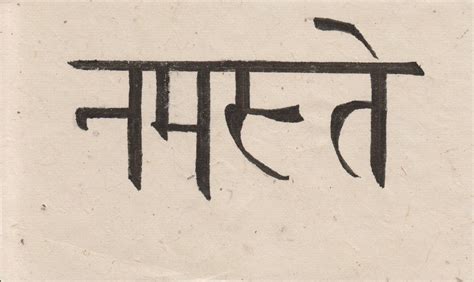 नमस्ते